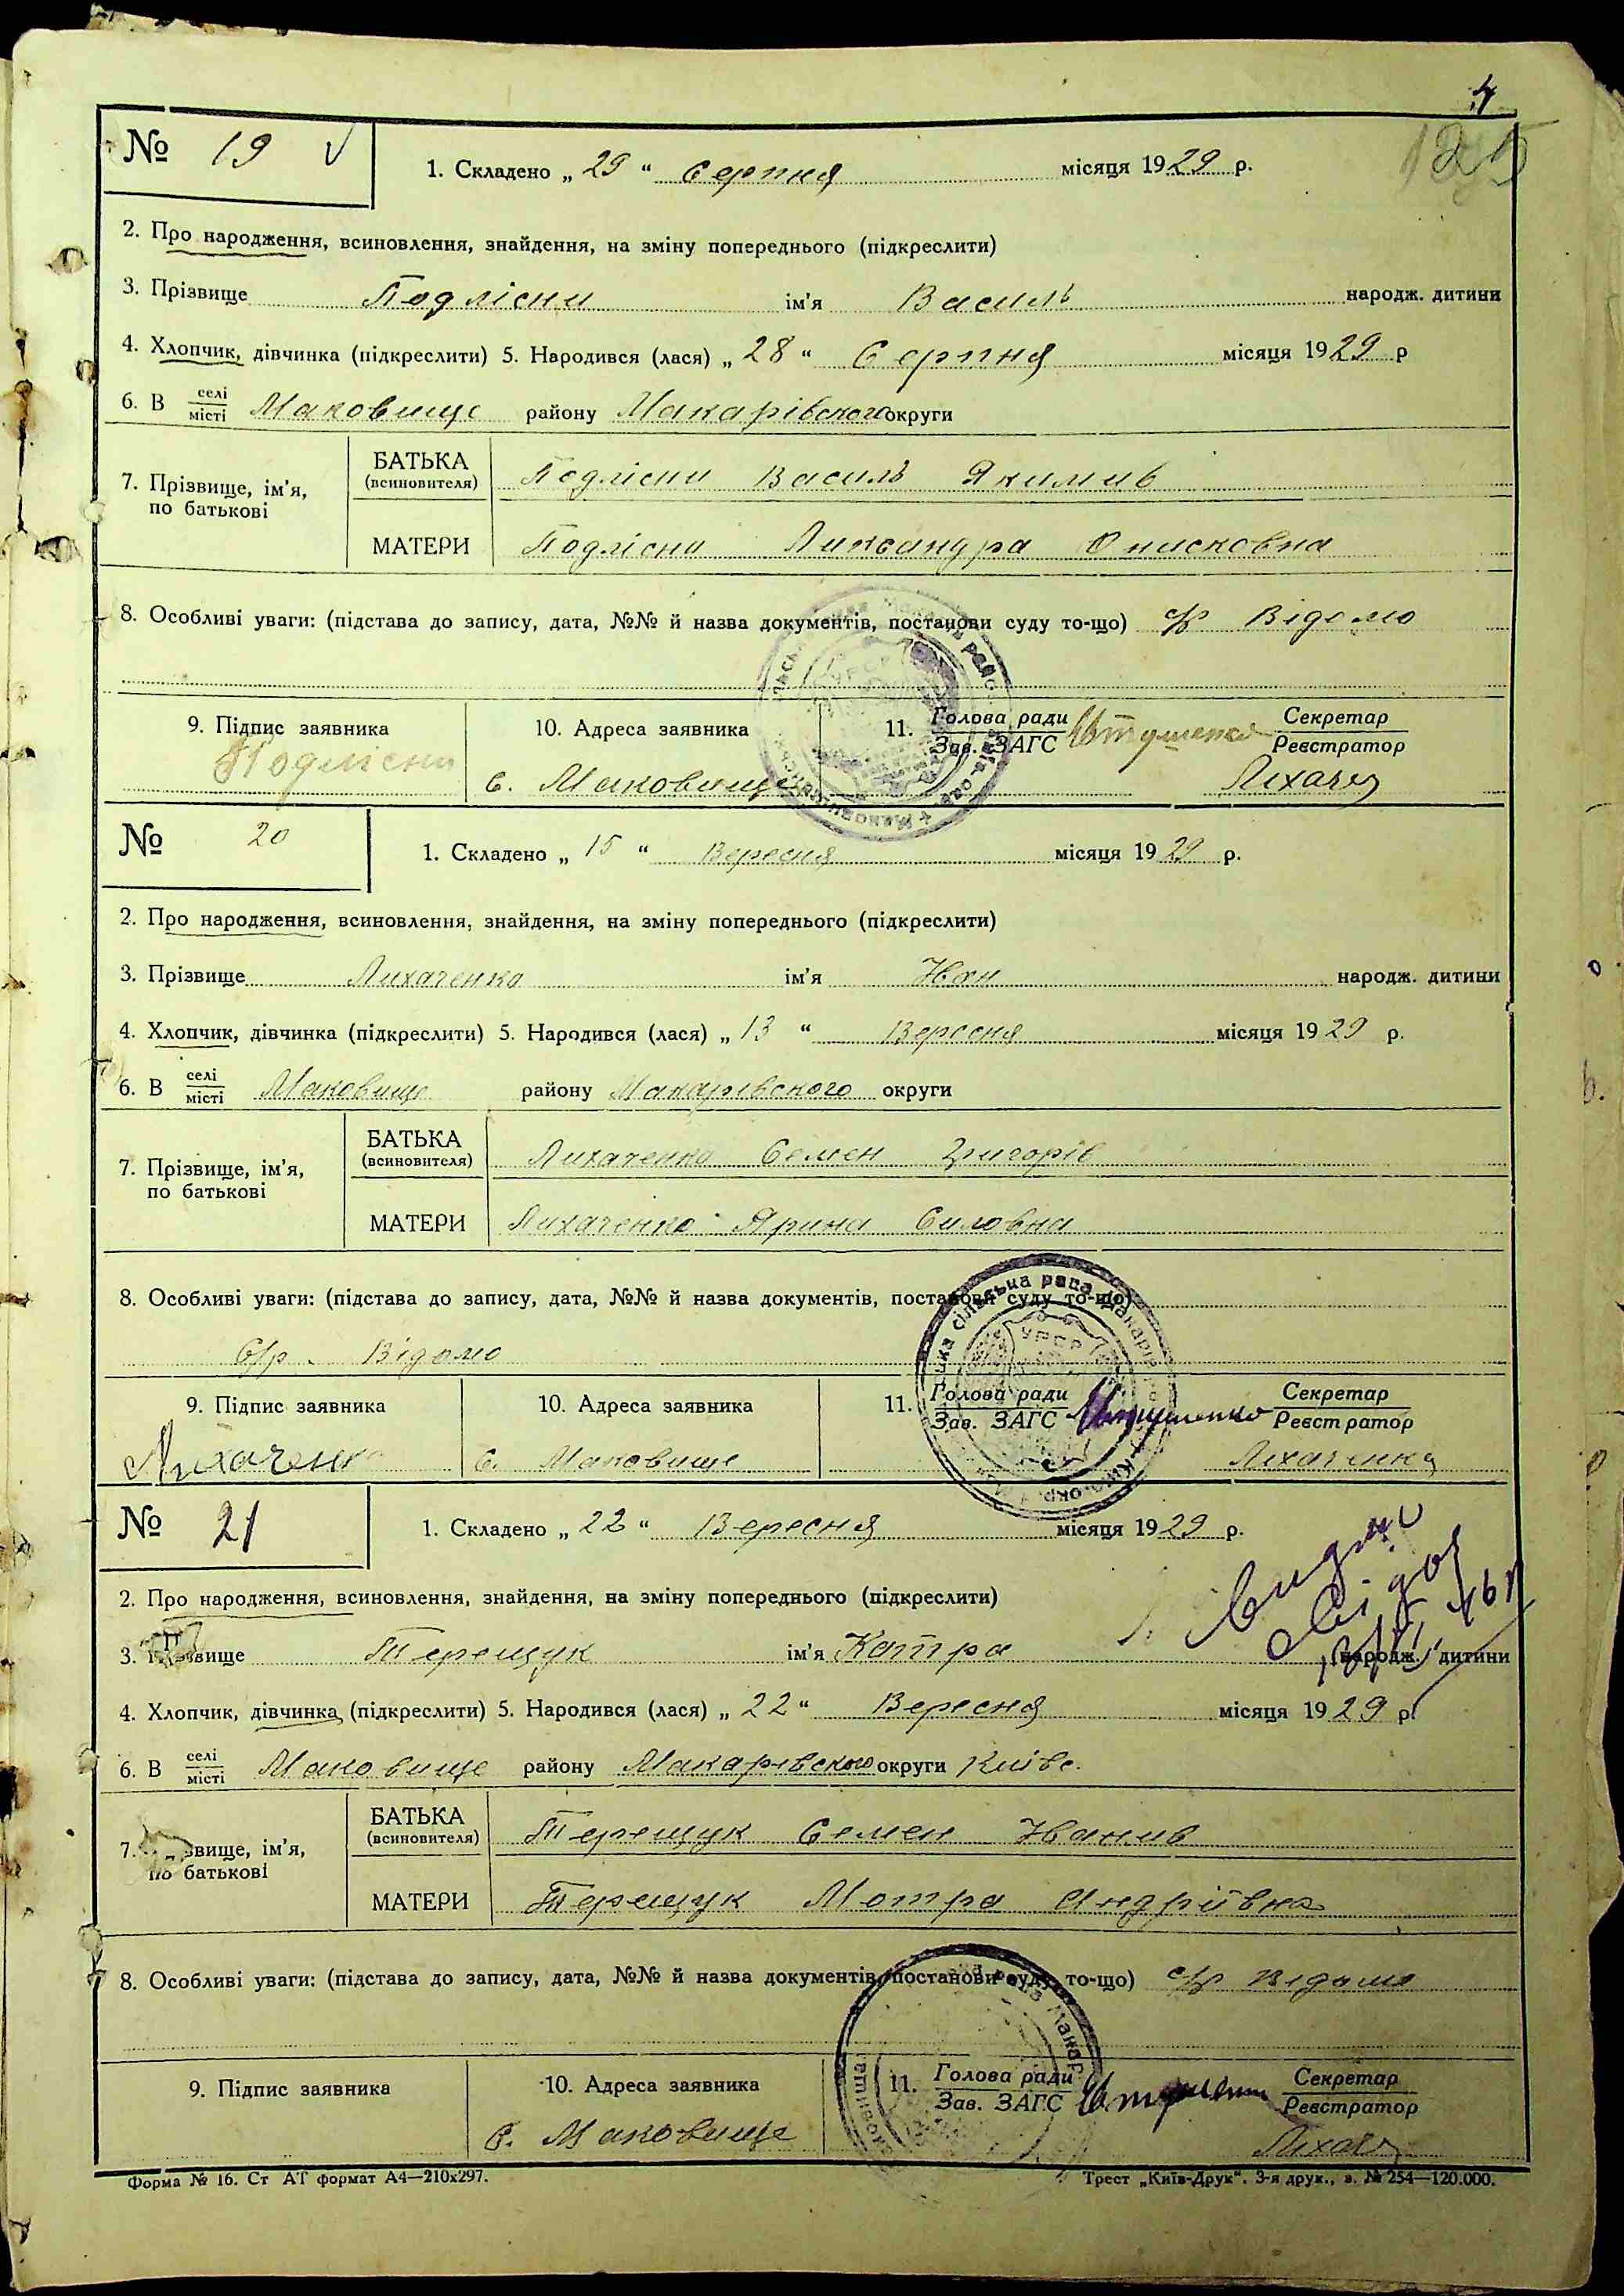 4
125
№ 19 V
1. Складено „ 29 “ Серпня місяця 1929 р.
2. Про народження, всиновлення, знайдення, на зміну попереднього (підкреслити)
3. Прізвище Подлісни ім'я Василь народж. дитини
4. Хлопчик, дівчинка (підкреслити) 5. Народився (лася) „ 28 “ Серпня місяця 1929 р
6. В селі/місті Маковище району Макарівского округи
7. Прізвище, ім'я, по батькові
БАТЬКА (всиновителя) Подлісни Василь Якимив
МАТЕРИ Подлісна Ликсандра Онисковна
8. Особливі уваги: (підстава до запису, дата, №№ й назва документів, постанови суду то-що) с/р Відомо
9. Підпис заявника 10. Адреса заявника 11. Голова ради/Зав. ЗАГС Секретар/Реєстратор
Подлісни с. Маковище Лихач
№ 20
1. Складено „ 15 “ Вересня місяця 1929 р.
2. Про народження, всиновлення, знайдення, на зміну попереднього (підкреслити)
3. Прізвище Лихаченко ім'я Іван народж. дитини
4. Хлопчик, дівчинка (підкреслити) 5. Народився (лася) „ 13 “ Вересня місяця 1929 р.
6. В селі/місті Маковище району Макарівского округи
7. Прізвище, ім'я, по батькові
БАТЬКА (всиновителя) Лихаченко Семен Григорів
МАТЕРИ Лихаченко Ярина Силовна
8. Особливі уваги: (підстава до запису, дата, №№ й назва документів, постанови суду то-що)
С/р. Відомо
9. Підпис заявника 10. Адреса заявника 11. Голова ради/Зав. ЗАГС Секретар/Реєстратор
Лихаченко с. Маковище Лихаченко
№ 21
1. Складено „ 22 “ Вересня місяця 1929 р.
2. Про народження, всиновлення, знайдення, на зміну попереднього (підкреслити)
3. Прізвище Терещук ім'я Катра народж. дитини
4. Хлопчик, дівчинка (підкреслити) 5. Народився (лася) „ 22 “ Вересня місяця 1929 р.
6. В селі/місті Маковище району Макарівского округи Київс.
7. Прізвище, ім'я, по батькові
БАТЬКА (всиновителя) Терещук Семен Іванив
МАТЕРИ Терещук Мотра Андріївна
8. Особливі уваги: (підстава до запису, дата, №№ й назва документів, постанови суду то-що) с/р Відомо
9. Підпис заявника 10. Адреса заявника 11. Голова ради/Зав. ЗАГС Секретар/Реєстратор
с. Маковище Лихач
Форма № 16. Ст АТ формат А4—210х297. Трест „Київ-Друк“. 3-я друк., з. № 254—120.000.